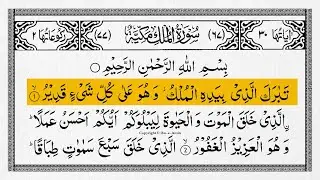 اٰیَاتُهَا ۳۰ (٦٧) سُوْرَةُ الْمُلْكِ مَكِّيَّةٌ (٧٧) رُكُوْعَاتُهَا ۲
بِسْمِ اللّٰهِ الرَّحْمٰنِ الرَّحِيْمِ ○
تَبٰرَكَ الَّذِىْ بِيَدِهِ الْمُلْكُ وَهُوَ عَلٰى كُلِّ شَىْءٍ قَدِيْرُۨ ۙ ①
الَّذِىْ خَلَقَ الْمَوْتَ وَالْحَيٰوةَ لِيَبْلُوَكُمْ اَيُّكُمْ اَحْسَنُ عَمَلًا ؕ
وَهُوَ الْعَزِيْزُ الْغَفُوْرُ ۙ ② الَّذِىْ خَلَقَ سَبْعَ سَمٰوٰتٍ طِبَاقًا ؕ